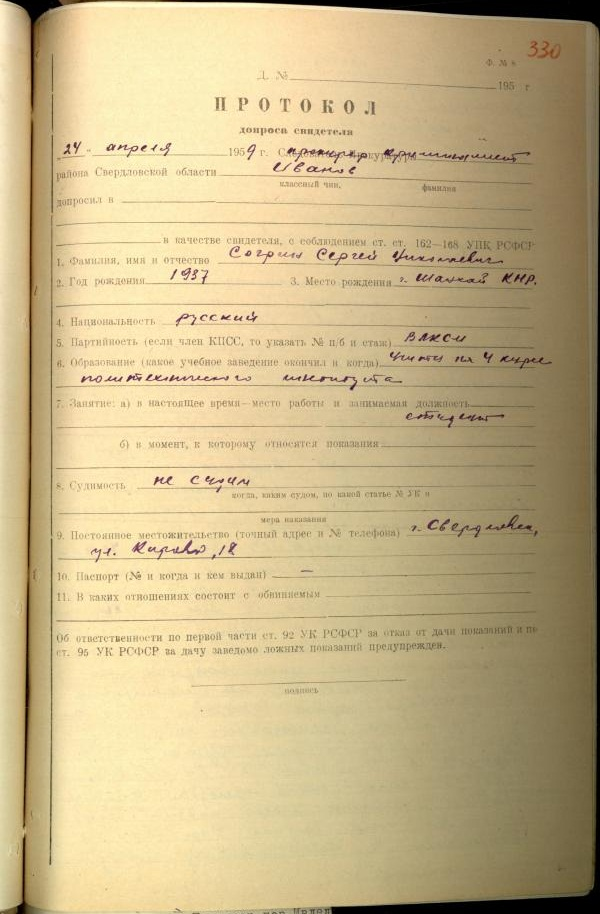 330
Ф. № 8
Д. № 195 г
ПРОТОКОЛ
допроса свидетеля
„24“ апреля 1959 г. прокурор криминалист
района Свердловской области Иванов
классный чин, фамилия
допросил в
в качестве свидетеля, с соблюдением ст. ст. 162—168 УПК РСФСР
1. Фамилия, имя и отчество Согрин Сергей Николаевич
2. Год рождения 1937 3. Место рождения г. Шанхай КНР.
4. Национальность русский
5. Партийность (если член КПСС, то указать № п/б и стаж) ВЛКСМ
6. Образование (какое учебное заведение окончил и когда) учится на 4 курсе
политехнического института
7. Занятие: а) в настоящее время—место работы и занимаемая должность
студент
б) в момент, к которому относятся показания
8. Судимость не судим
когда, каким судом, по какой статье № УК и
мера наказания
9. Постоянное местожительство (точный адрес и № телефона) г. Свердловск,
ул. Кирова, 18
10. Паспорт (№ и когда и кем выдан) —
11. В каких отношениях состоит с обвиняемым
Об ответственности по первой части ст. 92 УК РСФСР за отказ от дачи показаний и по
ст. 95 УК РСФСР за дачу заведомо ложных показаний предупрежден.
подпись